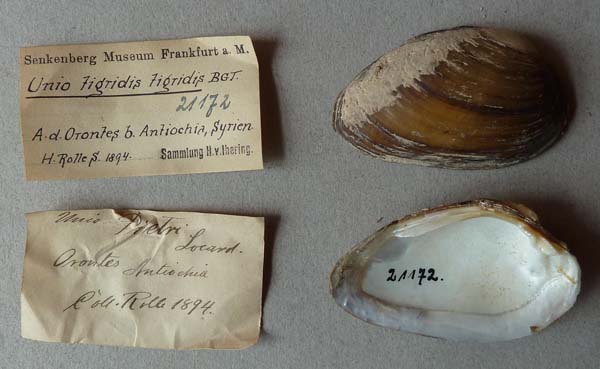 Senkenberg Museum Frankfurt a. M.
Unio tigridis tigridis BGT.
21172
A. d. Orontes b. Antiochia, Syrien
H. Rolle S. 1894. Sammlung H. v. Ihering.
Unio Pietri
Locard.
Orontes Antiochia
Coll. Rolle 1894.
21172.